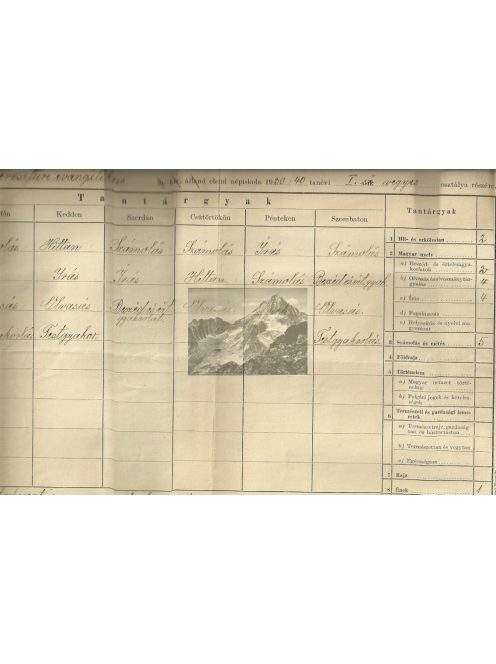 évangélikus
áll. állami elemi népiskola 1939/40 tanévi I. só. vegyes osztálya részére
Tantárgyak
Kedden Szerdán Csütörtökön Pénteken Szombaton
Hittan Számolás Számolás Írás Számolás
Írás Írás Hittan Számolás
Olvasás Olvasás
Testgyakor. Testgyakorlás
Tantárgyak
1 Hit- és erkölcstan 2
2 Magyar nyelv
a) Beszéd- és értelemgyakorlatok 2
b) Olvasás és olvasmánytárgyalás 4
c) Írás 4
d) Fogalmazás
e) Helyesírás és nyelvi magyarázat
3 Számolás és mérés 5
4 Földrajz
5 Történelem
a) Magyar nemzet történelme
b) Polgári jogok és kötelességek
6 Természeti és gazdasági ismeretek
a) Természetrajz, gazdaságtan és háztartástan
b) Természettan és vegytan
c) Egészségtan
7 Rajz
8 Ének 1